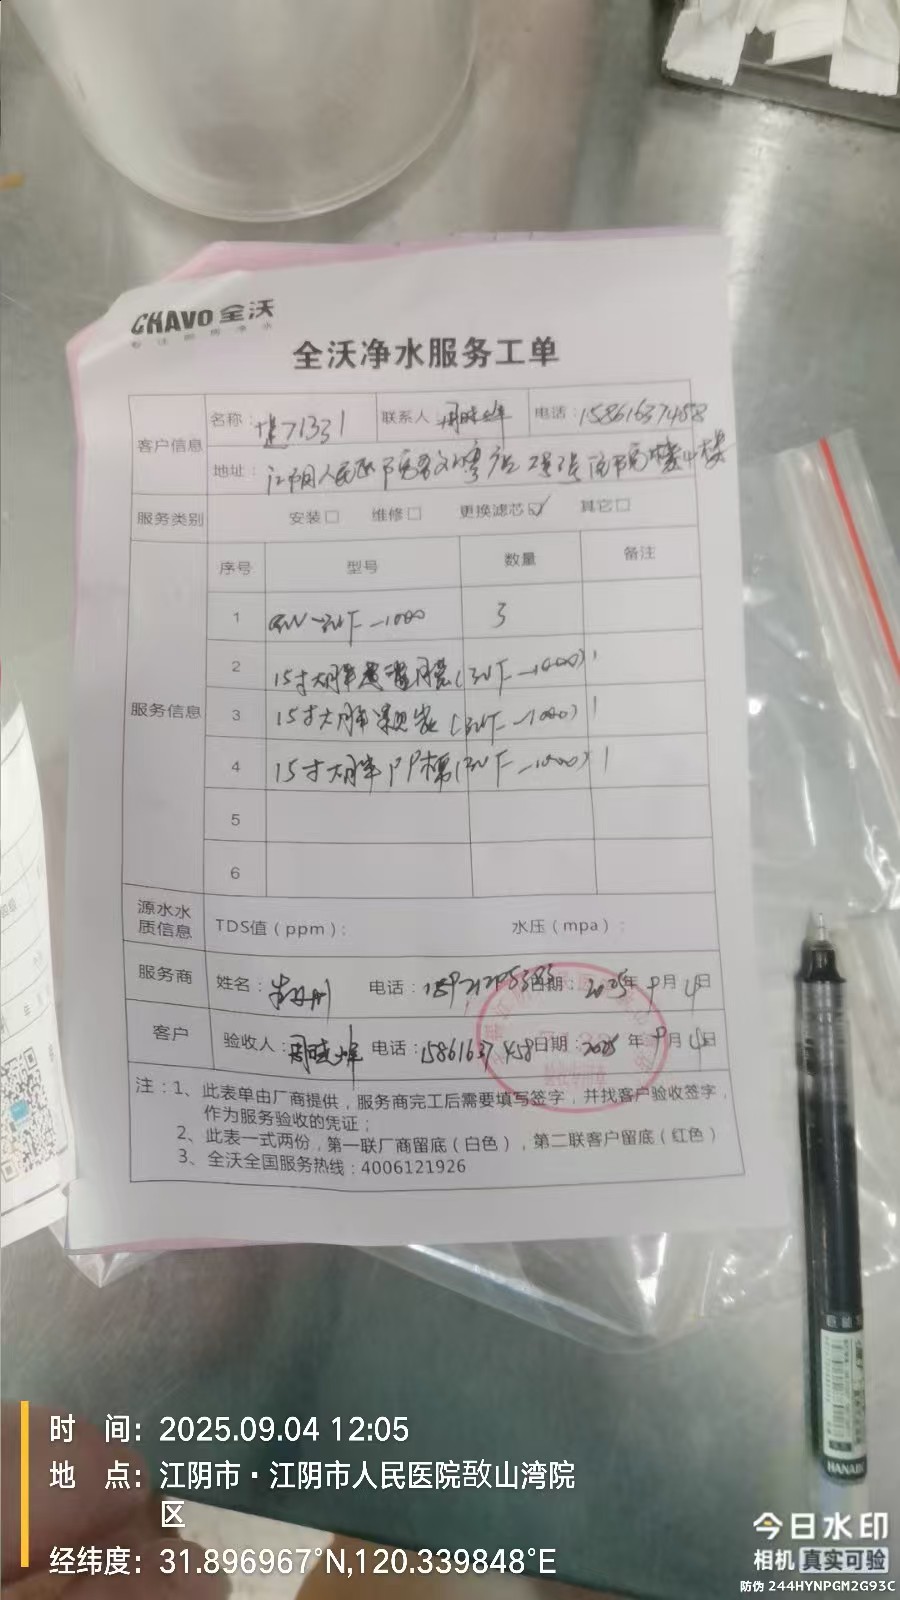 CHAVO 全沃
专注厨房净水
全沃净水服务工单
客户信息 名称： 71331 联系人 周晓峰 电话：15861637458
地址： 江阴人民医院
服务类别 安装□ 维修□ 更换滤芯☑ 其它□
服务信息 序号 型号 数量 备注
1 -1000 3
2 15寸大胖 (3UF-1000) 1
3 15寸大胖 (3UF-1000) 1
4 15寸大胖PP棉(3UF-1000) 1
5
6
源水水质信息 TDS值（ppm）： 水压（mpa）：
服务商 姓名： 电话： 日期：2025年9月4日
客户 验收人：周晓峰 电话：15861637458 日期：2025年9月4日
注：1、此表单由厂商提供，服务商完工后需要填写签字，并找客户验收签字，
作为服务验收的凭证；
2、此表一式两份，第一联厂商留底（白色），第二联客户留底（红色）
3、全沃全国服务热线：4006121926
HANABI
时 间：2025.09.04 12:05
地 点：江阴市·江阴市人民医院敔山湾院
区
经纬度：31.896967°N,120.339848°E
今日水印
相机 真实可验
防伪 244HYNPGM2G93C